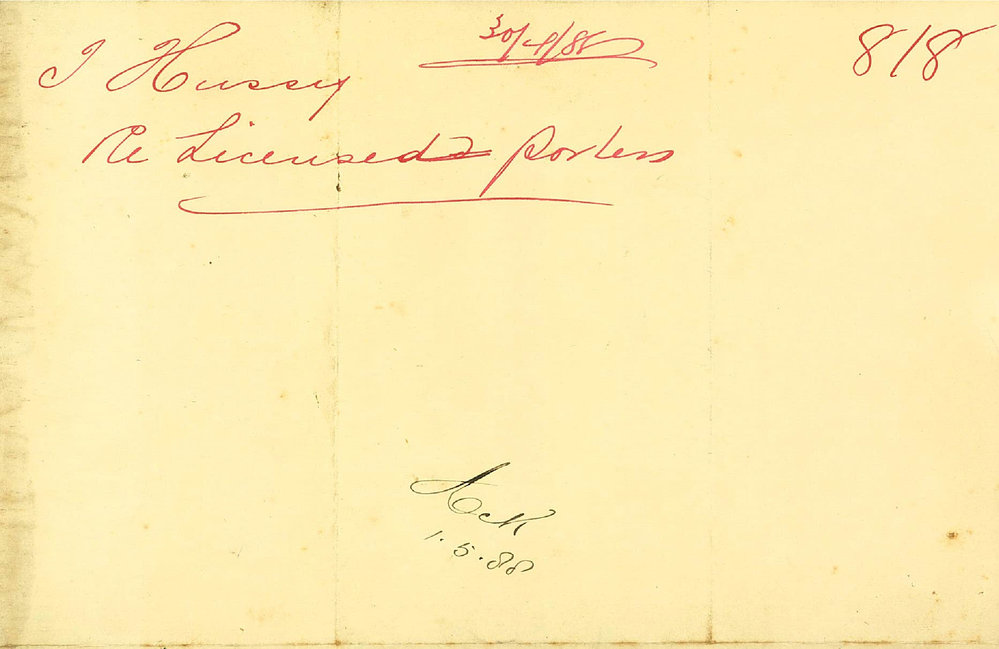 J Hussey 30/4/88 818
Re Licensed porters
Ack
1.5.88